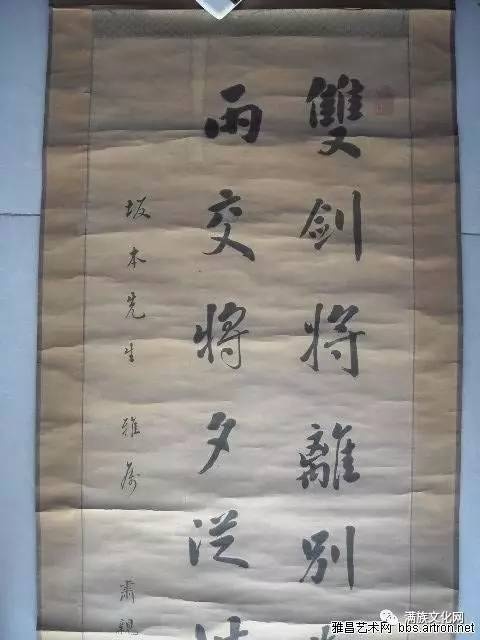 雙劍將離別
雨交將夕從
坂本先生雅屬
肅親
满族文化网
雅昌艺术网 bbs.artron.net